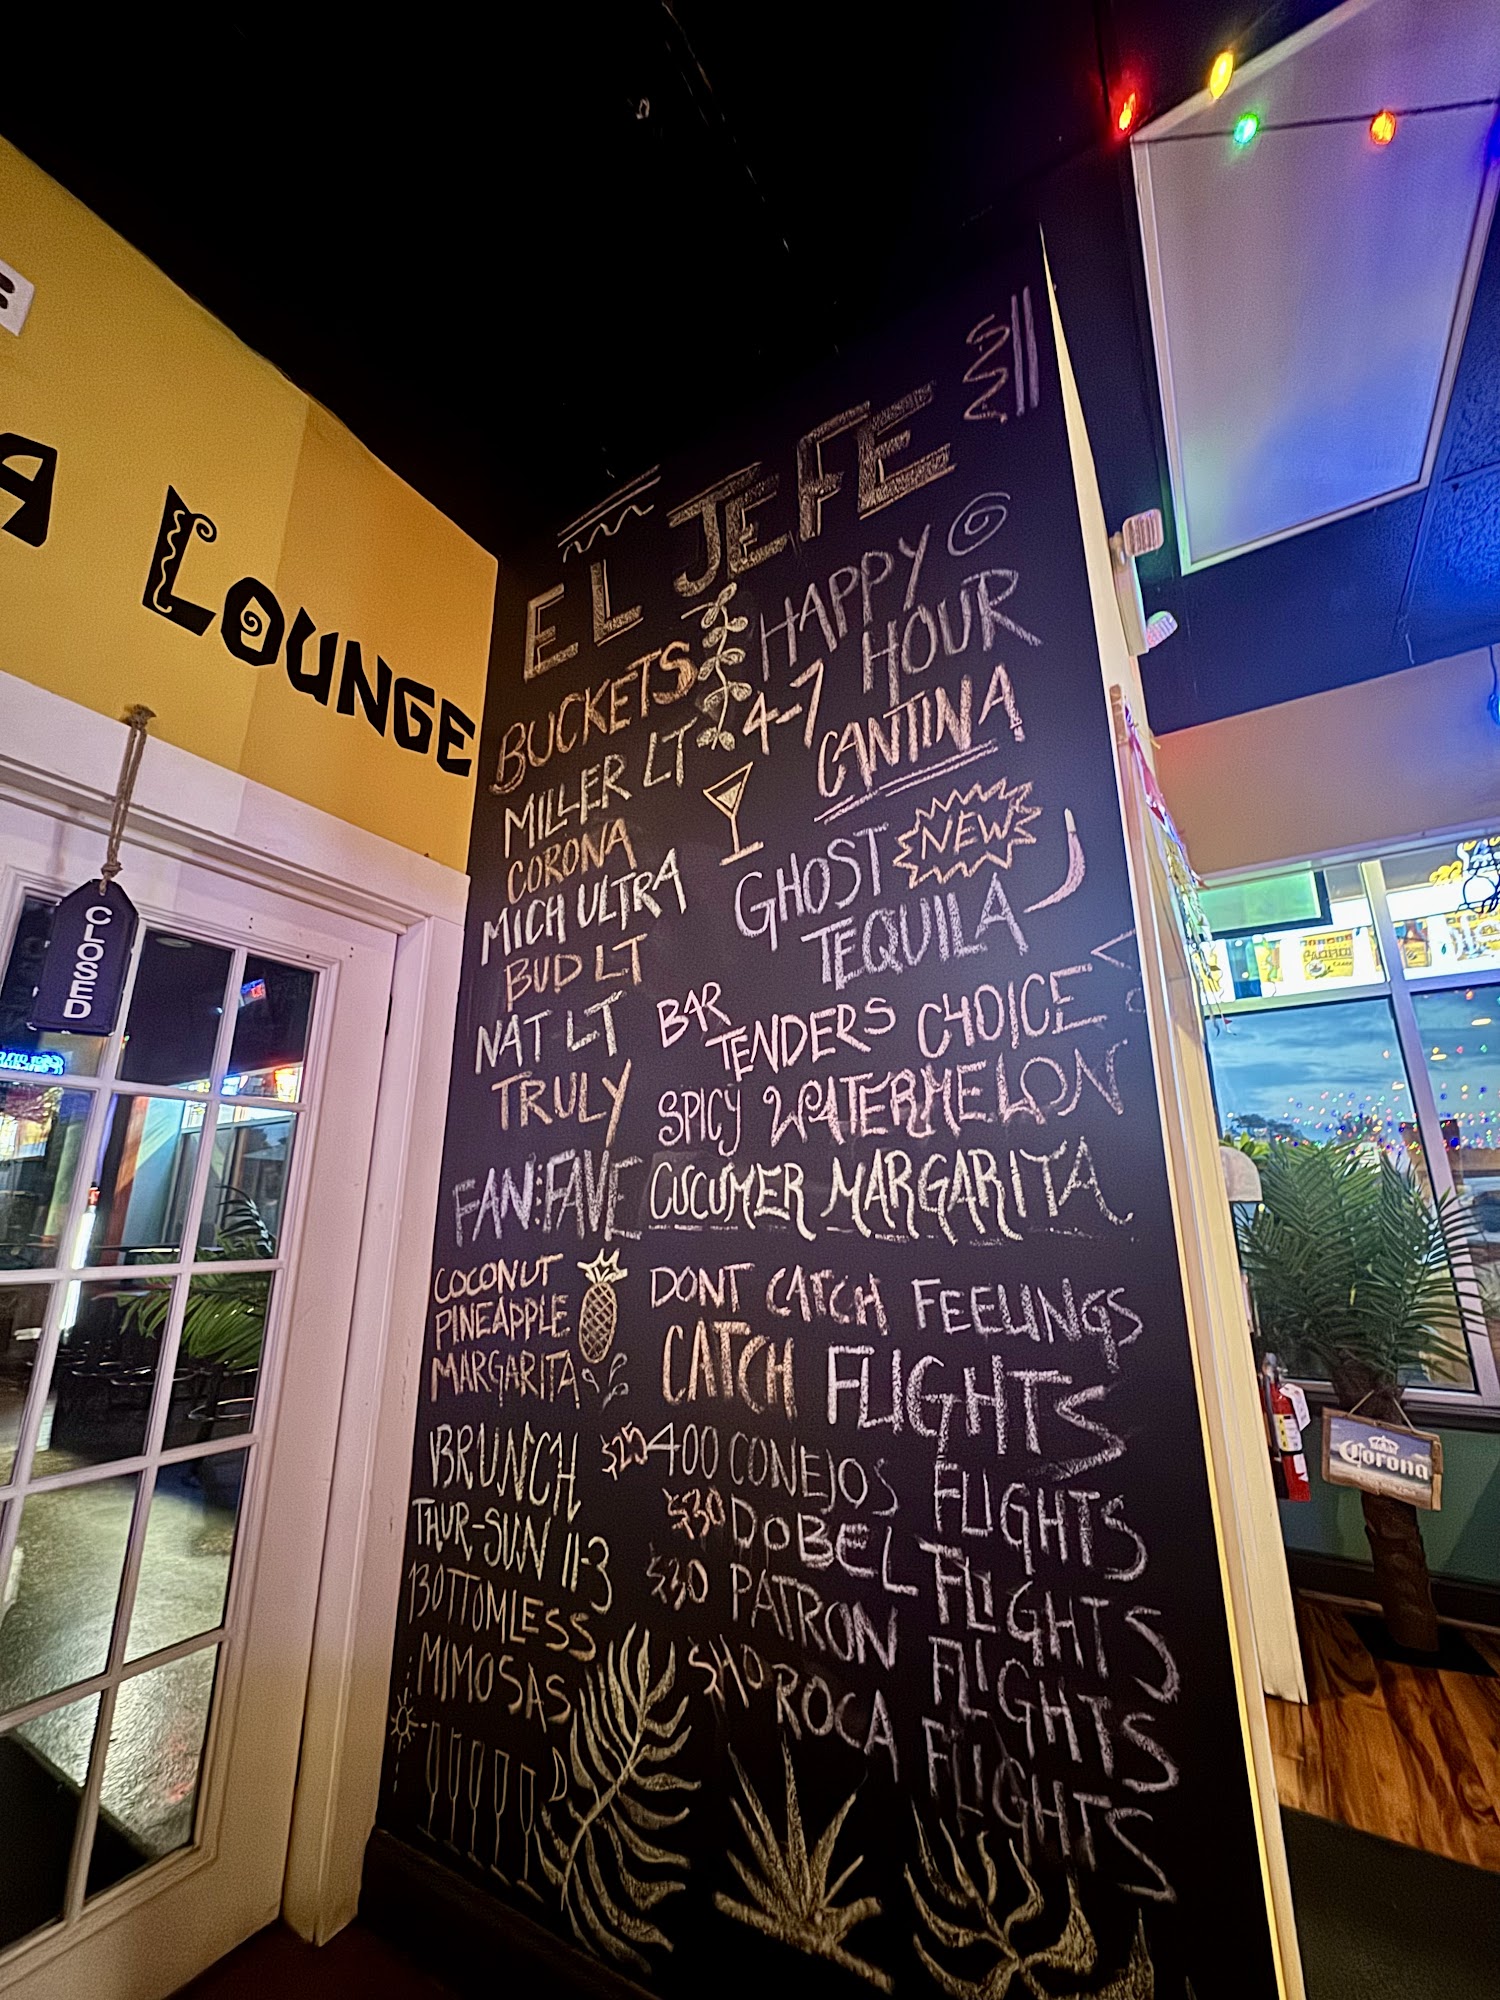 A LOUNGE
CLOSED
EL JEFE
BUCKETS
MILLER LT
CORONA
MICH ULTRA
BUD LT
NAT LT
TRULY
HAPPY
HOUR
4-7
CANTINA
GHOST NEW
TEQUILA
BAR
TENDERS CHOICE
SPICY WATERMELON
CUCUMER MARGARITA
FAN:FAVE
COCONUT
PINEAPPLE
MARGARITA
DONT CATCH FEELINGS
CATCH FLIGHTS
$25 400 CONEJOS FLIGHTS
$30 DOBEL FLIGHTS
$30 PATRON FLIGHTS
$40 ROCA FLIGHTS
BRUNCH
THUR-SUN 11-3
BOTTOMLESS
MIMOSAS
Corona